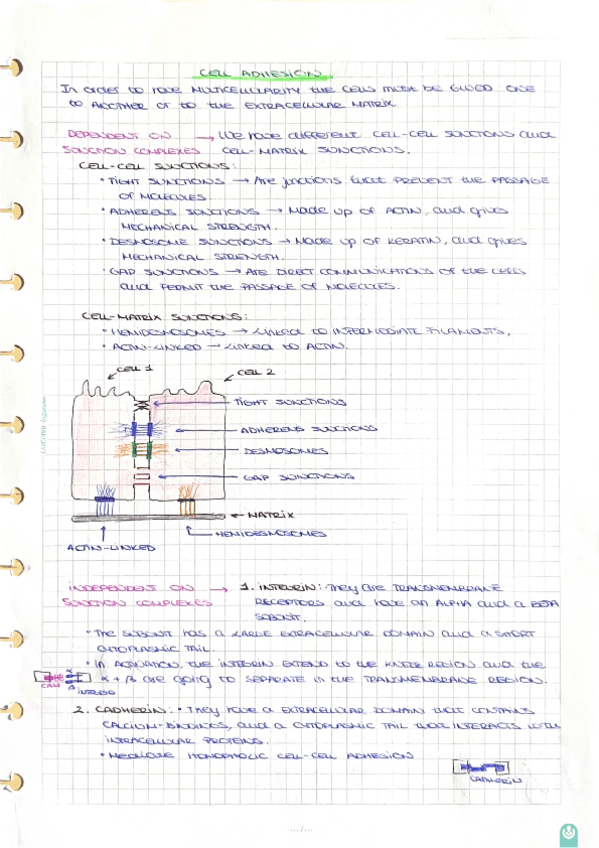 CELL ADHESION
In order to have MULTICELLULARITY the CELLS must be GLUED ONE
to ANOTHER or to the EXTRACELLULAR MATRIX
DEPENDENT ON → We have different CELL-CELL JUNCTIONS and
JUNCTION COMPLEXES CELL-MATRIX JUNCTIONS.
CELL-CELL JUNCTIONS:
• TIGHT JUNCTIONS → Are junctions that PREVENT the PASSAGE
of MOLECULES.
• ADHERENS JUNCTIONS → Made up of ACTIN, and gives
MECHANICAL STRENGTH.
• DESMOSOME JUNCTIONS → Made up of KERATIN, and gives
MECHANICAL STRENGTH.
• GAP JUNCTIONS → Are DIRECT COMMUNICATIONS of the CELLS
and PERMIT the PASSAGE of MOLECULES.
CELL-MATRIX JUNCTIONS:
• HEMIDESMOSOMES → LINKED to INTERMEDIATE FILAMENTS.
• ACTIN-LINKED → LINKED to ACTIN.
CELL 1
CELL 2
TIGHT JUNCTIONS
ADHERENS JUNCTIONS
DESMOSOMES
GAP JUNCTIONS
MATRIX
HEMIDESMOSOMES
ACTIN-LINKED
INDEPENDENT ON → 1. INTEGRIN: They are TRANSMEMBRANE
JUNCTION COMPLEXES RECEPTORS and have an ALPHA and a BETA
SUBUNIT.
• The SUBUNIT HAS a LARGE EXTRACELLULAR DOMAIN and a SHORT
CYTOPLASMIC TAIL.
• In ACTIVATION, the INTEGRIN EXTEND to the KNEE REGION and the
α + β are going to SEPARATE in the TRANSMEMBRANE REGION.
2. CADHERIN: • They HAVE a EXTRACELLULAR DOMAIN that CONTAINS
CALCIUM-BINDINGS, and a CYTOPLASMIC TAIL that INTERACTS with
INTRACELLULAR PROTEINS.
• MEDIATE HOMOPHILIC CELL-CELL ADHESION
CADHERIN
.../...